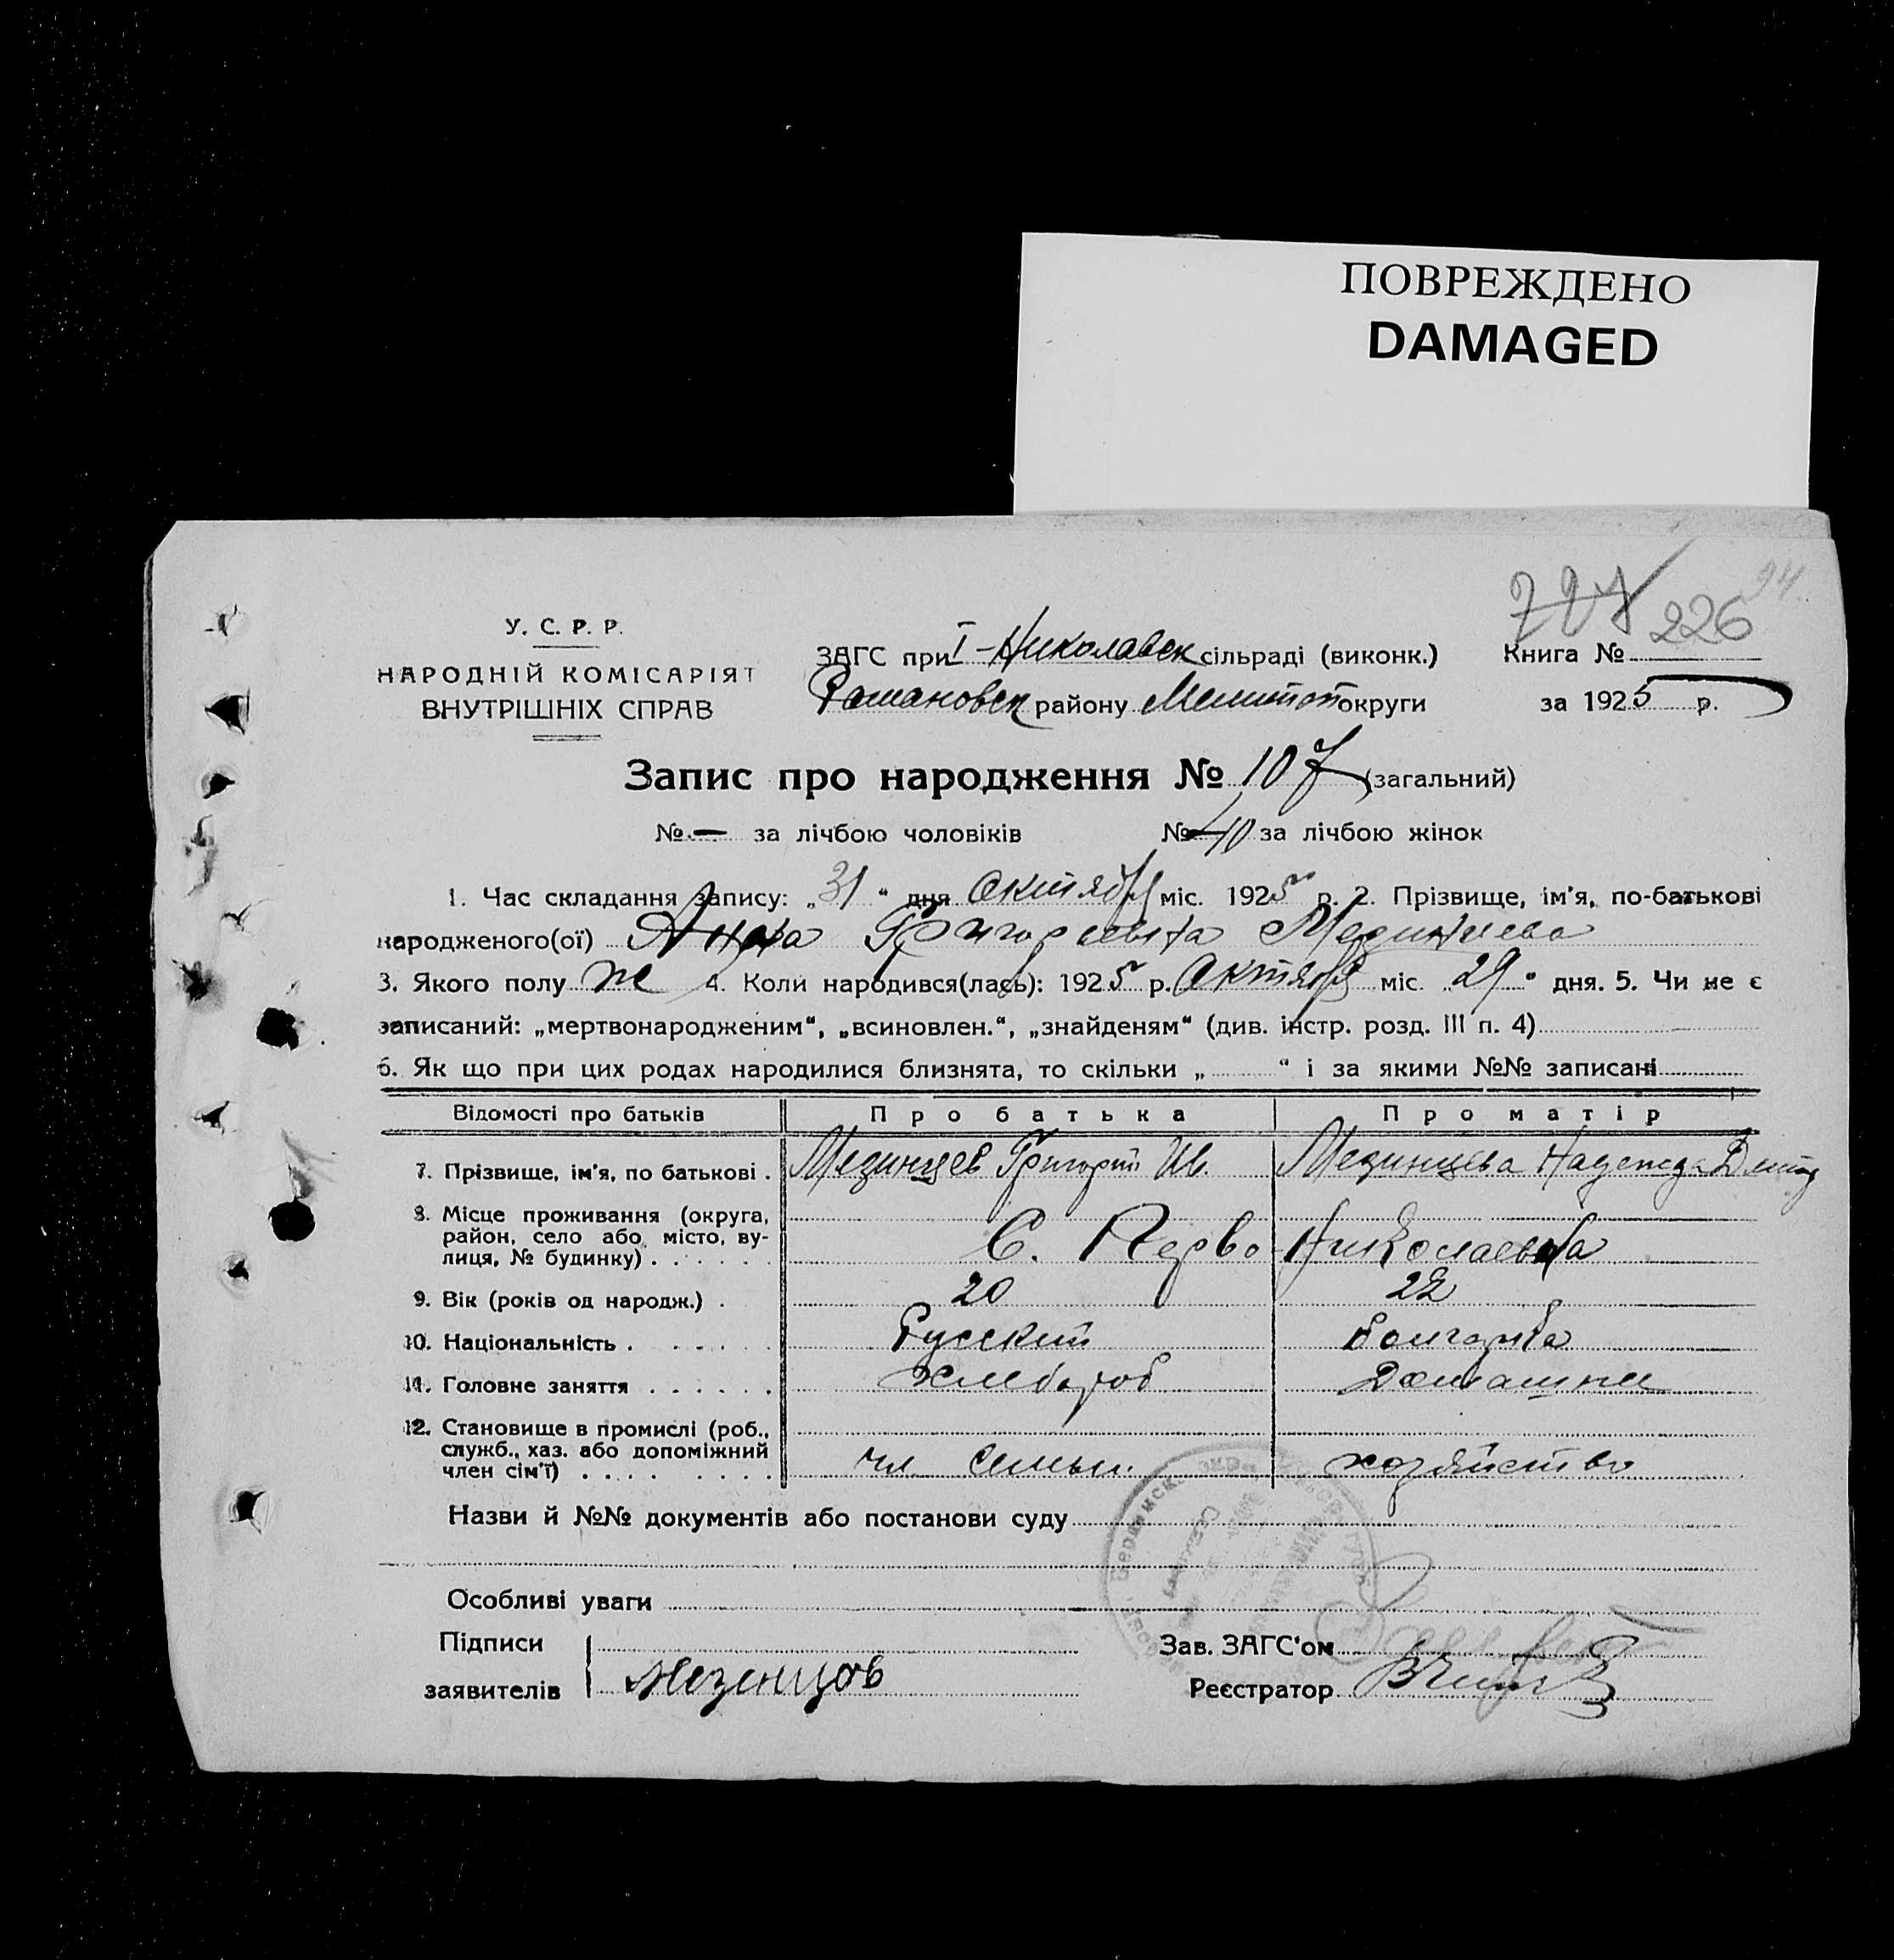 ПОВРЕЖДЕНО
DAMAGED
727 226 94
У. С. Р. Р.
НАРОДНІЙ КОМІСАРІЯТ
ВНУТРІШНІХ СПРАВ
ЗАГС при I-Николаевск сільраді (виконк.) Книга №
Романовск району Мелитоп округи за 1925 р.
Запис про народження № 107 (загальний)
№ — за лічбою чоловіків № 40 за лічбою жінок
1. Час складання запису: „31“ дня Октября міс. 1925 р. 2. Прізвище, ім'я, по-батькові
народженого(ої) Анна Григорьевна Мединцева
3. Якого полу ж 4. Коли народився(лась): 1925 р. Октября міс. „29“ дня. 5. Чи не є
записаний: „мертвонародженим“, „всиновлен.“, „знайденям“ (див. інстр. розд. III п. 4)
6. Як що при цих родах народилися близнята, то скільки „ “ і за якими №№ записані
Відомості про батьків Про батька Про матір
7. Прізвище, ім'я, по батькові . Мединцев Григорий Ив. Мединцева Надежда Дмит
8. Місце проживання (округа,
район, село або місто, ву-
лиця, № будинку) . . . . . . С. Перво-Николаевка
9. Вік (років од народж.) . 20 22
10. Національність . . . . . . Русский болгарка
11. Головне заняття . . . . . . Хлебороб Домашнее
12. Становище в промислі (роб.,
служб., хаз. або допоміжний
член сім'ї) . . . . . . . . чл. семьи. хозяйство
Назви й №№ документів або постанови суду
Особливі уваги
Підписи
Зав. ЗАГС'ом
заявителів Мезенцов Реєстратор